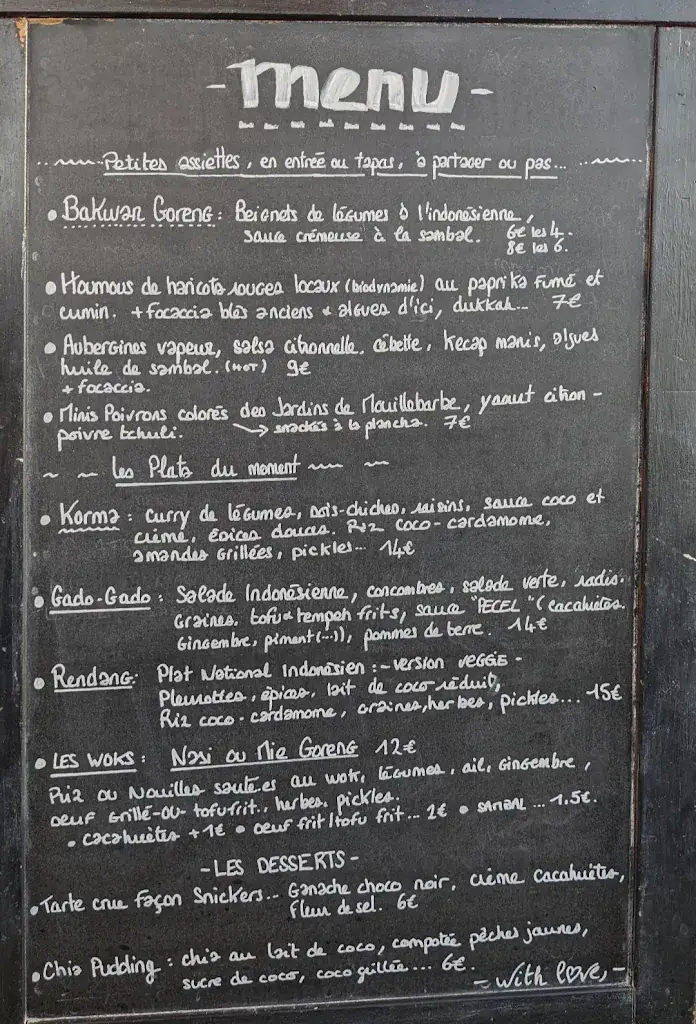 - menu -
Petites assiettes, en entrée ou tapas, à partager ou pas...
• Bakwan Goreng : Beignets de légumes à l'indonésienne,
sauce crémeuse à la sambal. 6€ les 4.
8€ les 6.
• Houmous de haricots rouges locaux (biodynamie) au paprika fumé et
cumin. + focaccia blés anciens & algues d'ici, dukkah... 7€
• Aubergines vapeur, salsa citronnelle, cébette, kecap manis, algues
huile de sambal. (HOT) 9€
+ focaccia.
• Minis Poivrons colorés des Jardins de Mouillebarbe, yaourt citron -
poivre tchuli. → snackés à la plancha. 7€
~ ~ Les Plats du moment ~ ~
• Korma : curry de légumes, pois-chiches, raisins, sauce coco et
crème, épices douces. Riz coco-cardamome,
amandes grillées, pickles... 14€
• Gado-Gado : Salade Indonésienne, concombres, salade verte, radis.
Graines, tofu & tempeh frits, sauce "PECEL" (cacahuètes.
Gingembre, piment (...)), pommes de terre. 14€
• Rendang : Plat National Indonésien : - version VEGGIE -
Pleurottes, épices, lait de coco réduit,
Riz coco-cardamome, graines, herbes, pickles... 15€
• LES WOKS : Nasi ou Mie Goreng 12€
Riz ou Nouilles sautées au wok, légumes, ail, gingembre,
oeuf grillé -OU- tofu frit, herbes, pickles.
• cacahuètes +1€ • oeuf frit/tofu frit... 2€ • SAMBAL ... 1.5€.
- LES DESSERTS -
• Tarte crue façon Snickers... Ganache choco noir, crème cacahuètes,
fleur de sel. 6€
• Chia Pudding : chia au lait de coco, compotée pêches jaunes,
sucre de coco, coco grillée.... 6€.
- With love, -